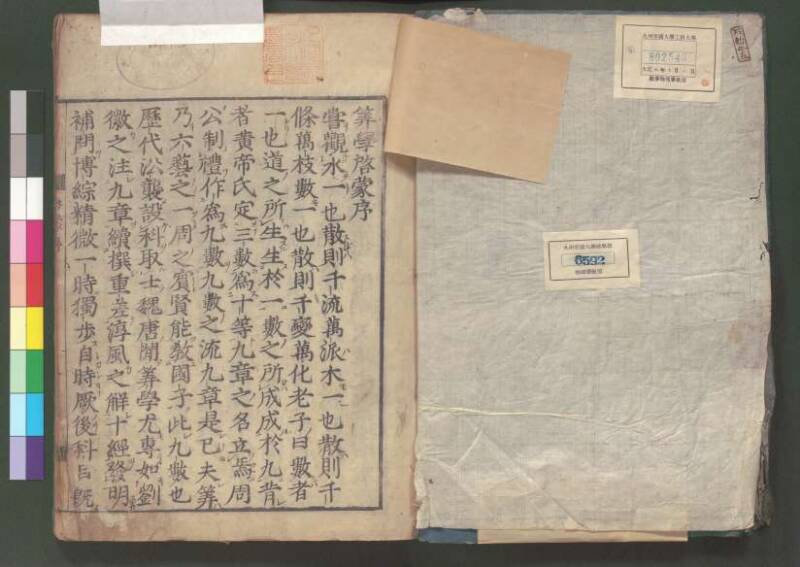 九州帝國大學工學大部
6592
算學啓蒙序
嘗觀水一也散則千流萬派木一也散則千
條萬枝數一也散則千變萬化老子曰數者
一也道之所生生於一數之所成成於九昔
者黄帝氏定三數爲十等九章之名立焉周
公制禮作爲九數九數之流九章是已夫筭
乃六藝之一周之賓賢能教國子此九數也
歷代沿襲設科取士魏唐間筭學尤專如劉
徽之注九章續撰重差淳風之解十經發明
補問博綜精微一時獨步自時厥後科目旣